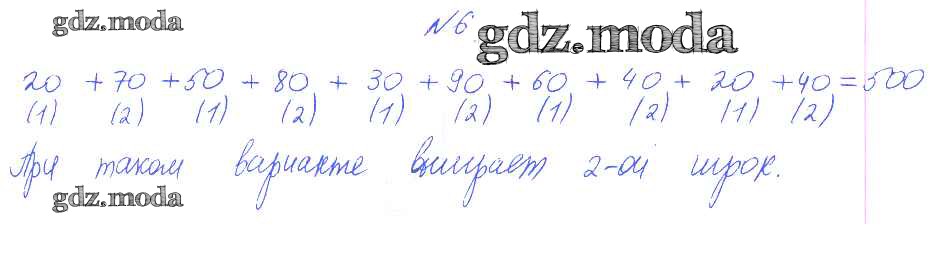 gdz.moda
№6 gdz.moda
20 + 70 + 50 + 80 + 30 + 90 + 60 + 40 + 20 + 40 = 500
(1) (2) (1) (2) (1) (2) (1) (2) (1) (2)
При таком варианте выиграет 2-ой игрок.
gdz.moda